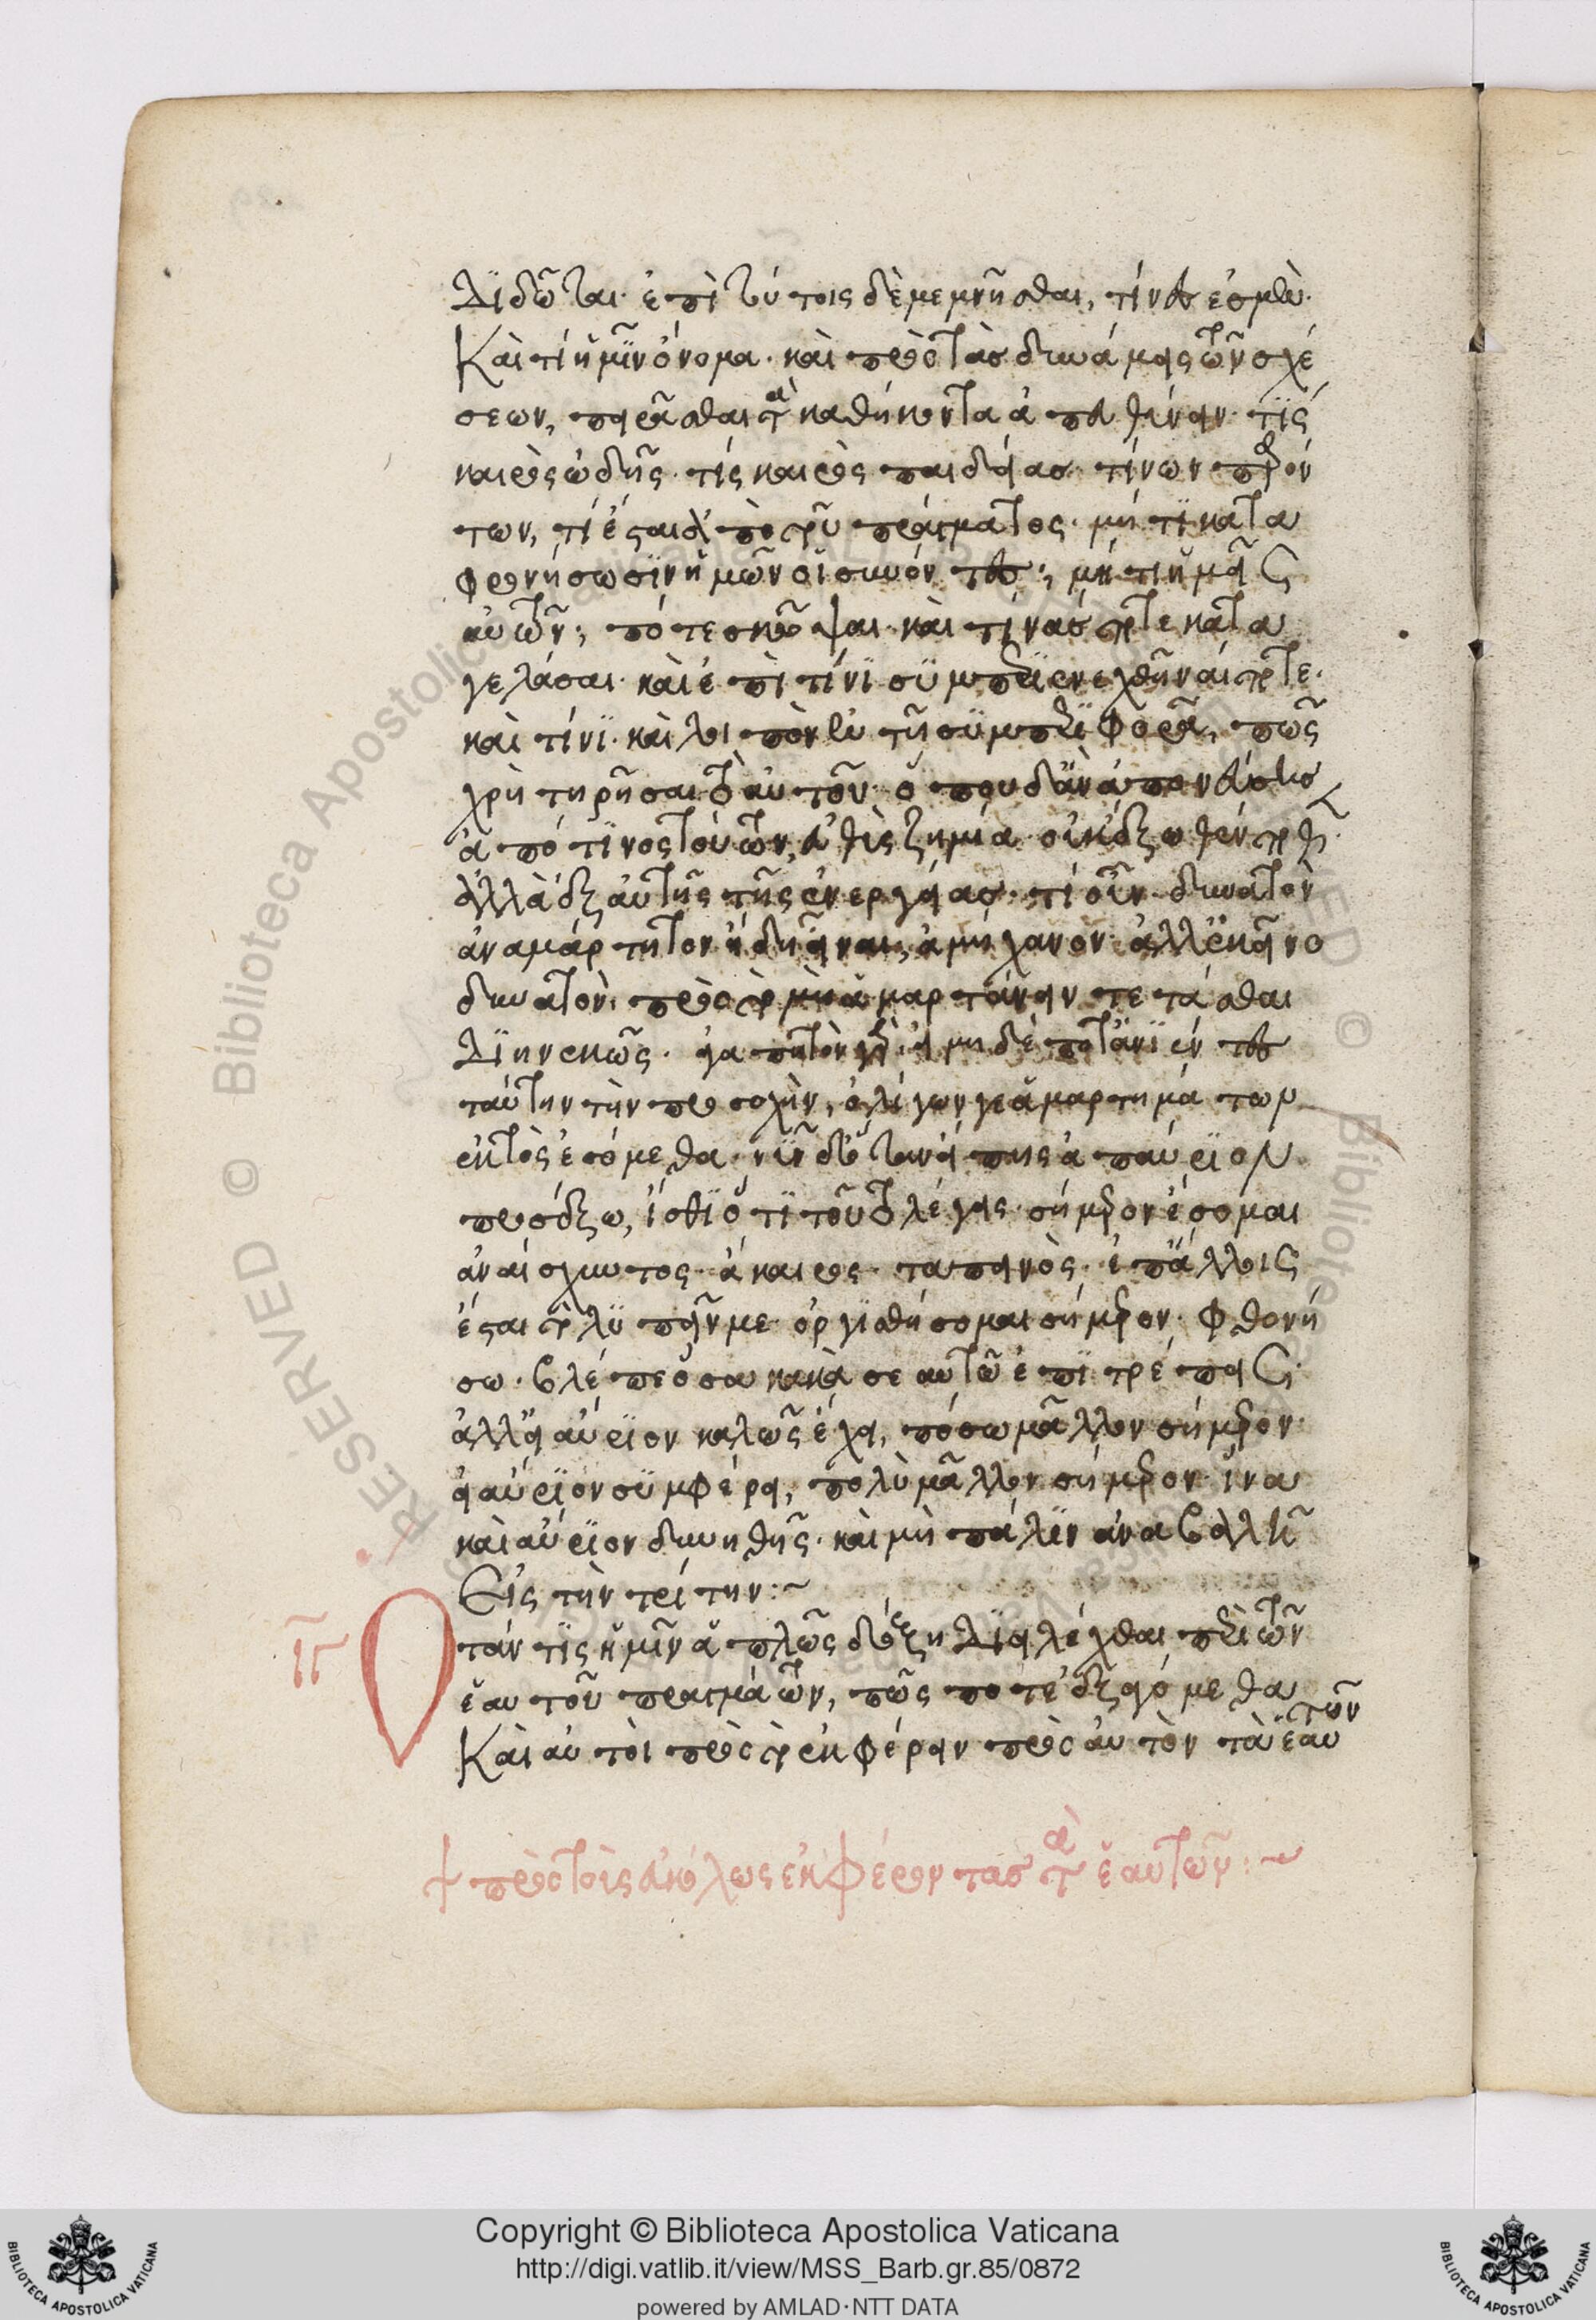 διδῶται· ἐπὶ τούτοις δὲ μεμνῆσθαι, τίνες ἐσμὲν·
Καὶ τί ἡμῖν ὄνομα· καὶ πρὸς τὰς δυνάμεις τῶν σχέ
σεων, πειρᾶσθαι τὰ καθήκοντα ἀπευθύνειν· τίς
καιρὸς ᾠδῆς· τίς καιρὸς παιδείας· τίνων παρόν
των, τί ἔσται ἀπὸ τοῦ πράγματος· μή τι κατα
φρονήσωσιν ἡμῶν οἱ συνόντες; μή τι ἡμεῖς
αὐτῶν; πότε σκῶψαι· καὶ τίνας ποτε κατα
γελάσαι· καὶ ἐπὶ τίνι συμπεριενεχθῆναί ποτε·
καὶ τίνι· καὶ λοιπὸν ἐν τῇ συμπεριφορᾷ, πῶς
χρὴ τηρῆσαι τὸ αὑτοῦ· ὅπου δ' ἂν ἀπονεύσῃς
ἀπό τινος τούτων, εὐθὺς ζημία· οὐκ ἔξωθέν ποθεν·
ἀλλὰ ἐξ αὐτῆς τῆς ἐνεργείας· τί οὖν· δυνατὸν
ἀναμάρτητον ἤδη εἶναι; ἀμήχανον· ἀλλ' ἐκεῖνο
δυνατὸν· πρὸς τὸ μὴ ἁμαρτάνειν τετάσθαι
διηνεκῶς· ἀγαπητὸν γὰρ· εἰ μηδέποτ' ἀνιέντες
ταύτην τὴν προσοχὴν, ὀλίγων γε ἁμαρτημάτων
ἐκτὸς ἐσόμεθα· νῦν δ' ὅταν εἴπῃς ἀπαύριον
προσέξω, ἴσθι ὅτι τοῦτο λέγεις· σήμερον ἔσομαι
ἀναίσχυντος· ἄκαιρος· ταπεινὸς· ἐπ' ἄλλοις
ἔσται τὸ λυπεῖν με· ὀργισθήσομαι σήμερον· φθονή
σω· βλέπε ὅσα κακὰ σεαυτῷ ἐπιτρέπεις·
ἀλλ' εἰ αὔριον καλῶς ἔχει, πόσῳ μᾶλλον σήμερον·
εἰ αὔριον συμφέρει, πολὺ μᾶλλον σήμερον· ἵνα
καὶ αὔριον δυνηθῇς· καὶ μὴ πάλιν ἀναβάλῃ
Εἰς τὴν τρίτην:~
Ὅταν τις ἡμῖν ἁπλῶς δόξῃ διειλέχθαι περὶ τῶν
ἑαυτοῦ πραγμάτων, πῶς ποτε ἐξαγόμεθα
Καὶ αὐτοὶ πρὸς τὸ ἐκφέρειν πρὸς αὐτὸν τὰ ἑαυτῶν
πρὸς τοὺς εὐκόλως ἐκφέροντας τὰ ἑαυτῶν:~
Copyright © Biblioteca Apostolica Vaticana
http://digi.vatlib.it/view/MSS_Barb.gr.85/0872
powered by AMLAD·NTT DATA